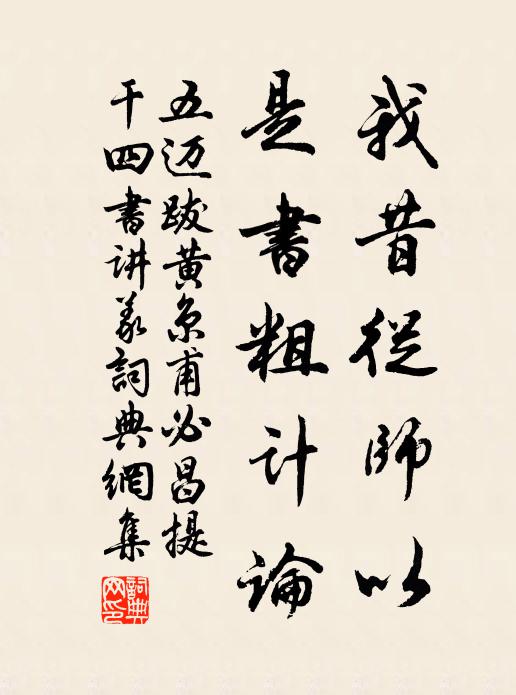 我昔從師以
是書粗計論
五迈跋黄京甫必昌提
干四書讲义詞典網集
詞典网印